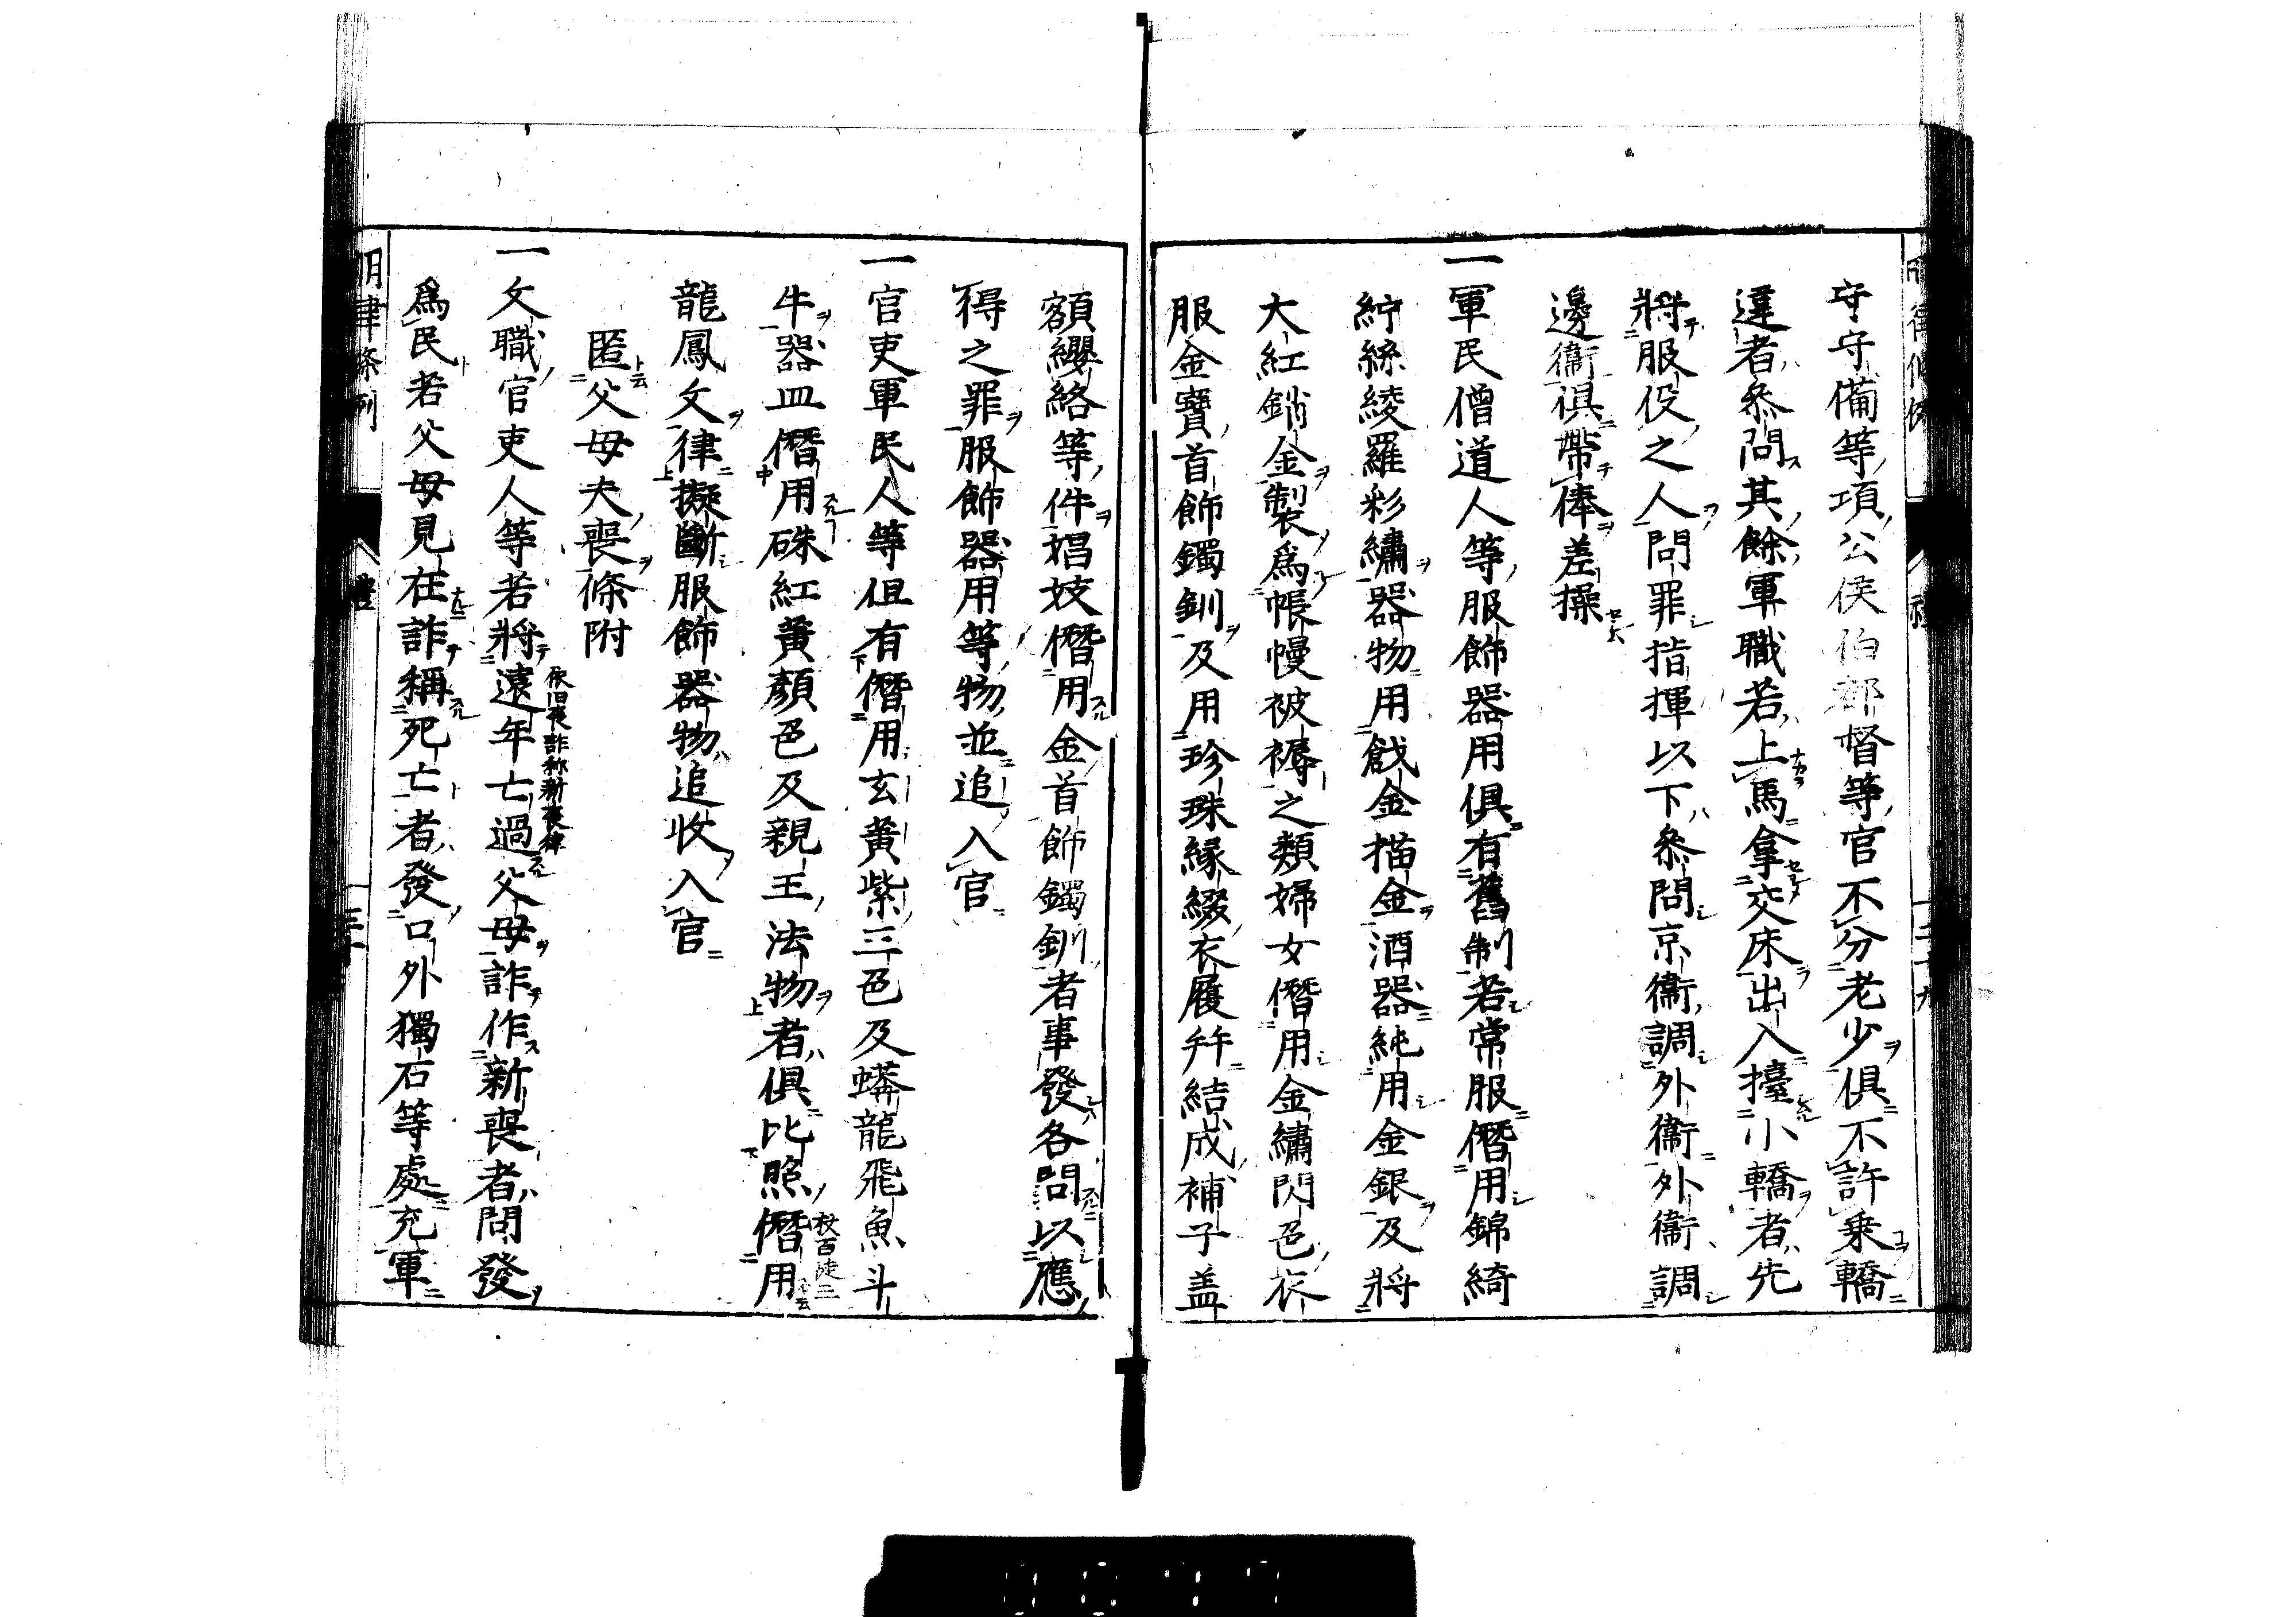 守守備等項公侯伯都督等官不分老少俱不許乗轎
違者叅問其餘軍職若上馬拿交床出入擡小轎者先
將服役之人問罪指揮以下叅問京衞調外衞外衞調
邊衞俱帶俸差操
一軍民僧道人等服飾器用俱有舊制若常服僭用錦綺
紵絲綾羅彩繡器物用戧金描金酒器純用金銀及將
大紅銷金製為帳幔被褥之類婦女僭用金繡閃色衣
服金寶首飾鐲釧及用珍珠緣綴衣履幷結成補子盖
額纓絡等件娼妓僭用金首飾鐲釧者事發各問以應
得之罪服飾器用等物並追入官
一官吏軍民人等但有僭用玄黃紫三色及蟒龍飛魚斗
牛器皿僭用硃紅黃顏色及親王法物者俱比照僭用
杖百徒三
龍鳳文律擬斷服飾器物追收入官
匿父母夫喪條附
一文職官吏人等若將遠年亡過父母詐作新喪者問發
依旧喪詐称新喪律
為民若父母見在詐稱死亡者發口外獨石等處充軍
明律條例